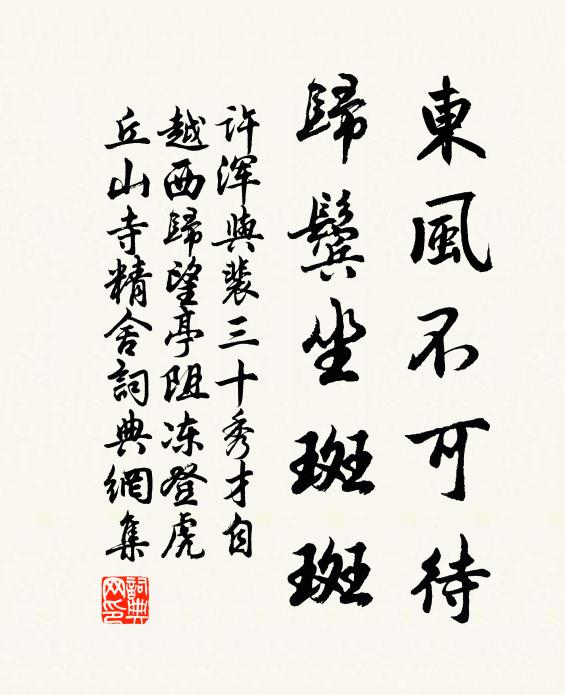 東風不可待
歸鬢坐斑斑
許渾與裴三十秀才自
越西歸望亭阻冻登虎
丘山寺精舍詞典網集
詞典
网印